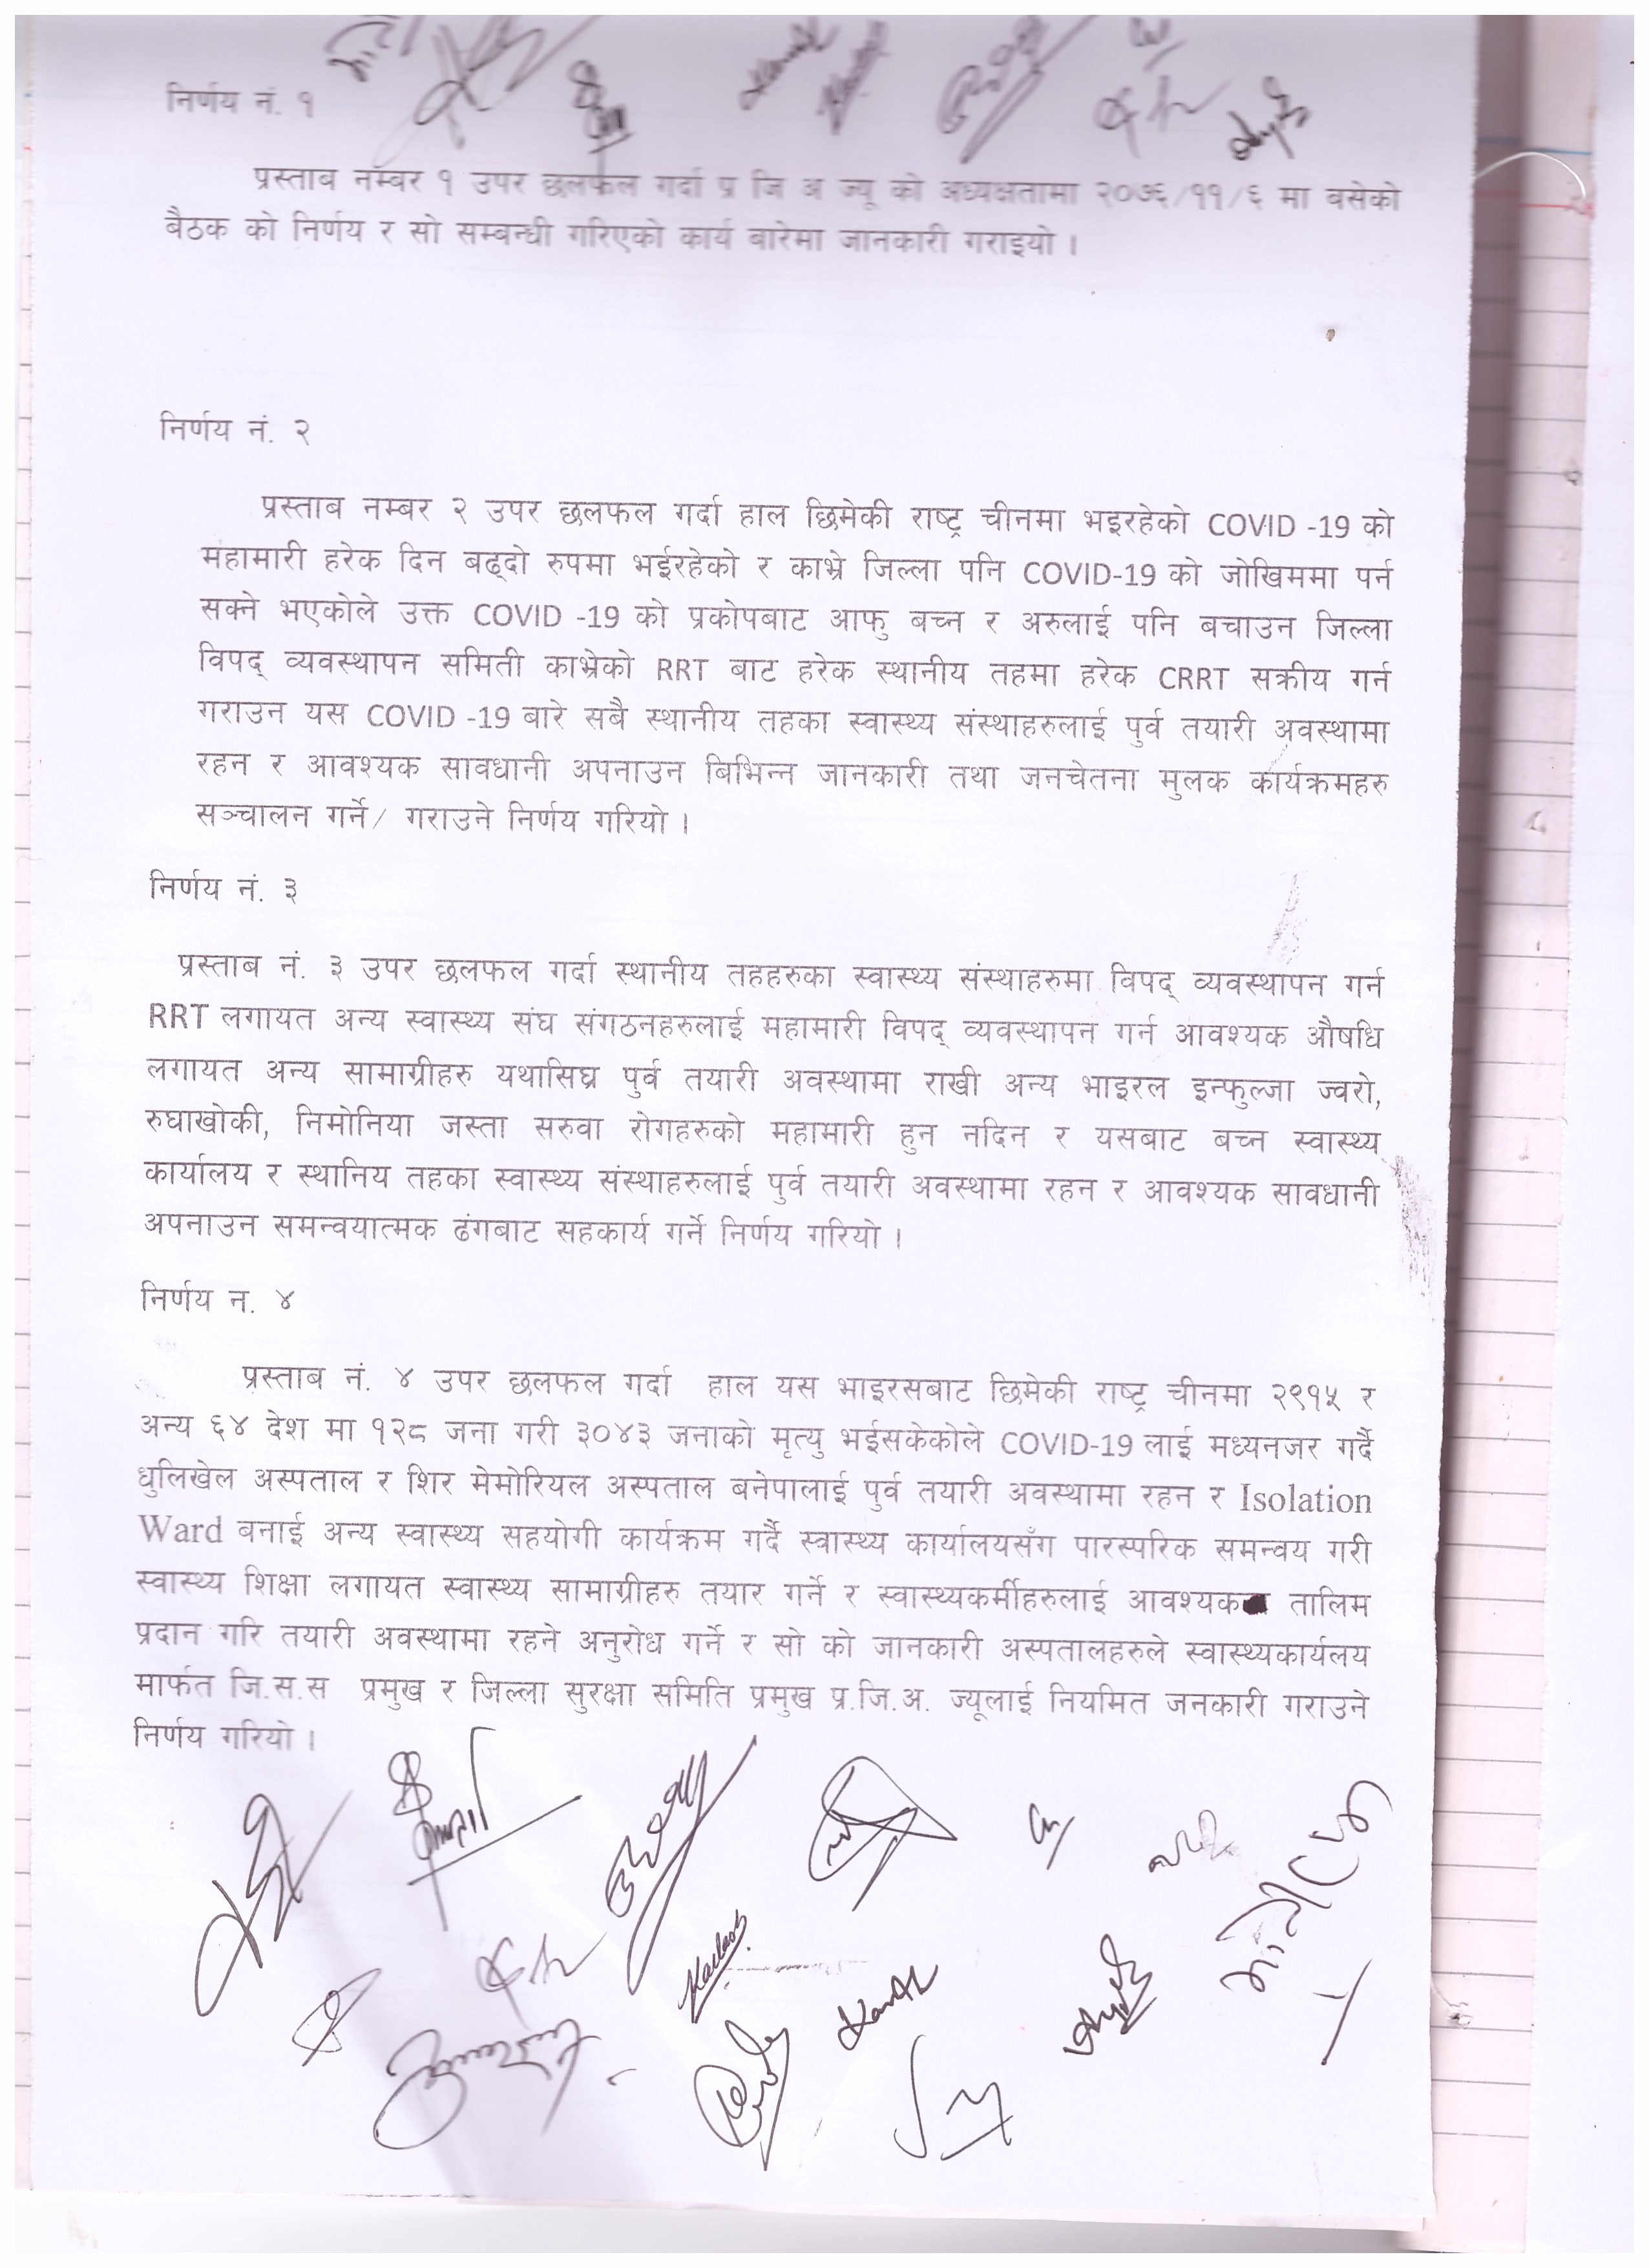 निर्णय नं. १
प्रस्ताब नम्बर १ उपर छलफल गर्दा प्र जि अ ज्यू को अध्यक्षतामा २०७६/११/६ मा बसेको
बैठक को निर्णय र सो सम्बन्धी गरिएको कार्य बारेमा जानकारी गराइयो ।
निर्णय नं. २
प्रस्ताब नम्बर २ उपर छलफल गर्दा हाल छिमेकी राष्ट्र चीनमा भइरहेको COVID -19 को
महामारी हरेक दिन बढ्दो रुपमा भईरहेको र काभ्रे जिल्ला पनि COVID-19 को जोखिममा पर्न
सक्ने भएकोले उक्त COVID -19 को प्रकोपबाट आफु बच्न र अरुलाई पनि बचाउन जिल्ला
विपद् व्यवस्थापन समिती काभ्रेको RRT बाट हरेक स्थानीय तहमा हरेक CRRT सक्रीय गर्न
गराउन यस COVID -19 बारे सबै स्थानीय तहका स्वास्थ्य संस्थाहरुलाई पुर्व तयारी अवस्थामा
रहन र आवश्यक सावधानी अपनाउन बिभिन्न जानकारी तथा जनचेतना मुलक कार्यक्रमहरु
सञ्चालन गर्ने/ गराउने निर्णय गरियो ।
निर्णय नं. ३
प्रस्ताब नं. ३ उपर छलफल गर्दा स्थानीय तहहरुका स्वास्थ्य संस्थाहरुमा विपद् व्यवस्थापन गर्न
RRT लगायत अन्य स्वास्थ्य संघ संगठनहरुलाई महामारी विपद् व्यवस्थापन गर्न आवश्यक औषधि
लगायत अन्य सामाग्रीहरु यथासिघ्र पुर्व तयारी अवस्थामा राखी अन्य भाइरल इन्फुल्जा ज्वरो,
रुघाखोकी, निमोनिया जस्ता सरुवा रोगहरुको महामारी हुन नदिन र यसबाट बच्न स्वास्थ्य
कार्यालय र स्थानिय तहका स्वास्थ्य संस्थाहरुलाई पुर्व तयारी अवस्थामा रहन र आवश्यक सावधानी
अपनाउन समन्वयात्मक ढंगबाट सहकार्य गर्ने निर्णय गरियो ।
निर्णय न. ४
प्रस्ताब नं. ४ उपर छलफल गर्दा हाल यस भाइरसबाट छिमेकी राष्ट्र चीनमा २९१५ र
अन्य ६४ देश मा १२८ जना गरी ३०४३ जनाको मृत्यु भईसकेकोले COVID-19 लाई मध्यनजर गर्दै
धुलिखेल अस्पताल र शिर मेमोरियल अस्पताल बनेपालाई पुर्व तयारी अवस्थामा रहन र Isolation
Ward बनाई अन्य स्वास्थ्य सहयोगी कार्यक्रम गर्दै स्वास्थ्य कार्यालयसँग पारस्परिक समन्वय गरी
स्वास्थ्य शिक्षा लगायत स्वास्थ्य सामाग्रीहरु तयार गर्ने र स्वास्थ्यकर्मीहरुलाई आवश्यक तालिम
प्रदान गरि तयारी अवस्थामा रहने अनुरोध गर्ने र सो को जानकारी अस्पतालहरुले स्वास्थ्यकार्यलय
मार्फत जि.स.स प्रमुख र जिल्ला सुरक्षा समिति प्रमुख प्र.जि.अ. ज्यूलाई नियमित जनकारी गराउने
निर्णय गरियो ।